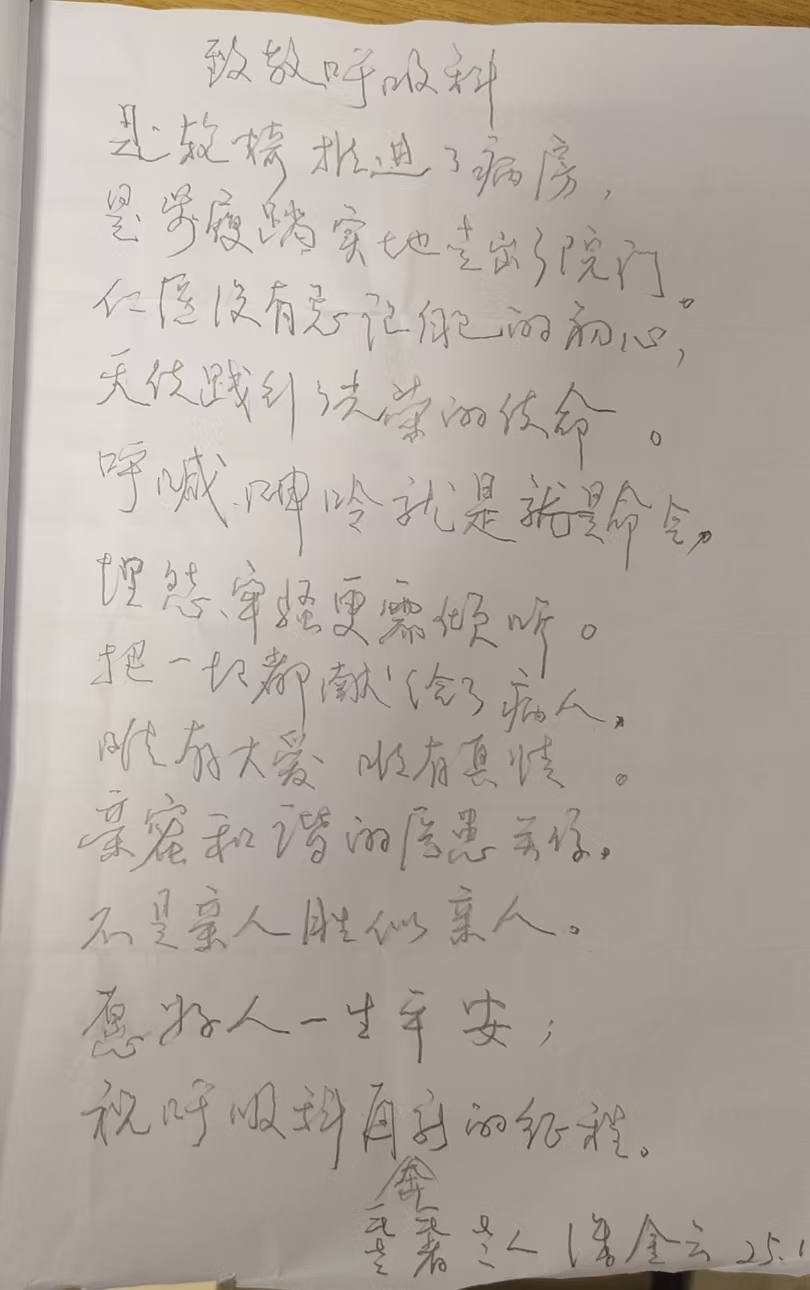 致敬呼吸科
是轮椅推进了病房，
是步履踏实地走出了院门。
仁医没有忘记自己的初心，
天使践行光荣的使命。
呼喊、呻吟就是就是命令，
埋怨、牢骚更需倾听。
把一切都献给了病人，
唯有大爱 唯有真情。
亲密和谐的医患关系，
不是亲人胜似亲人。
愿好人一生平安；
祝呼吸科再新的征程。
奔
金云 25.1